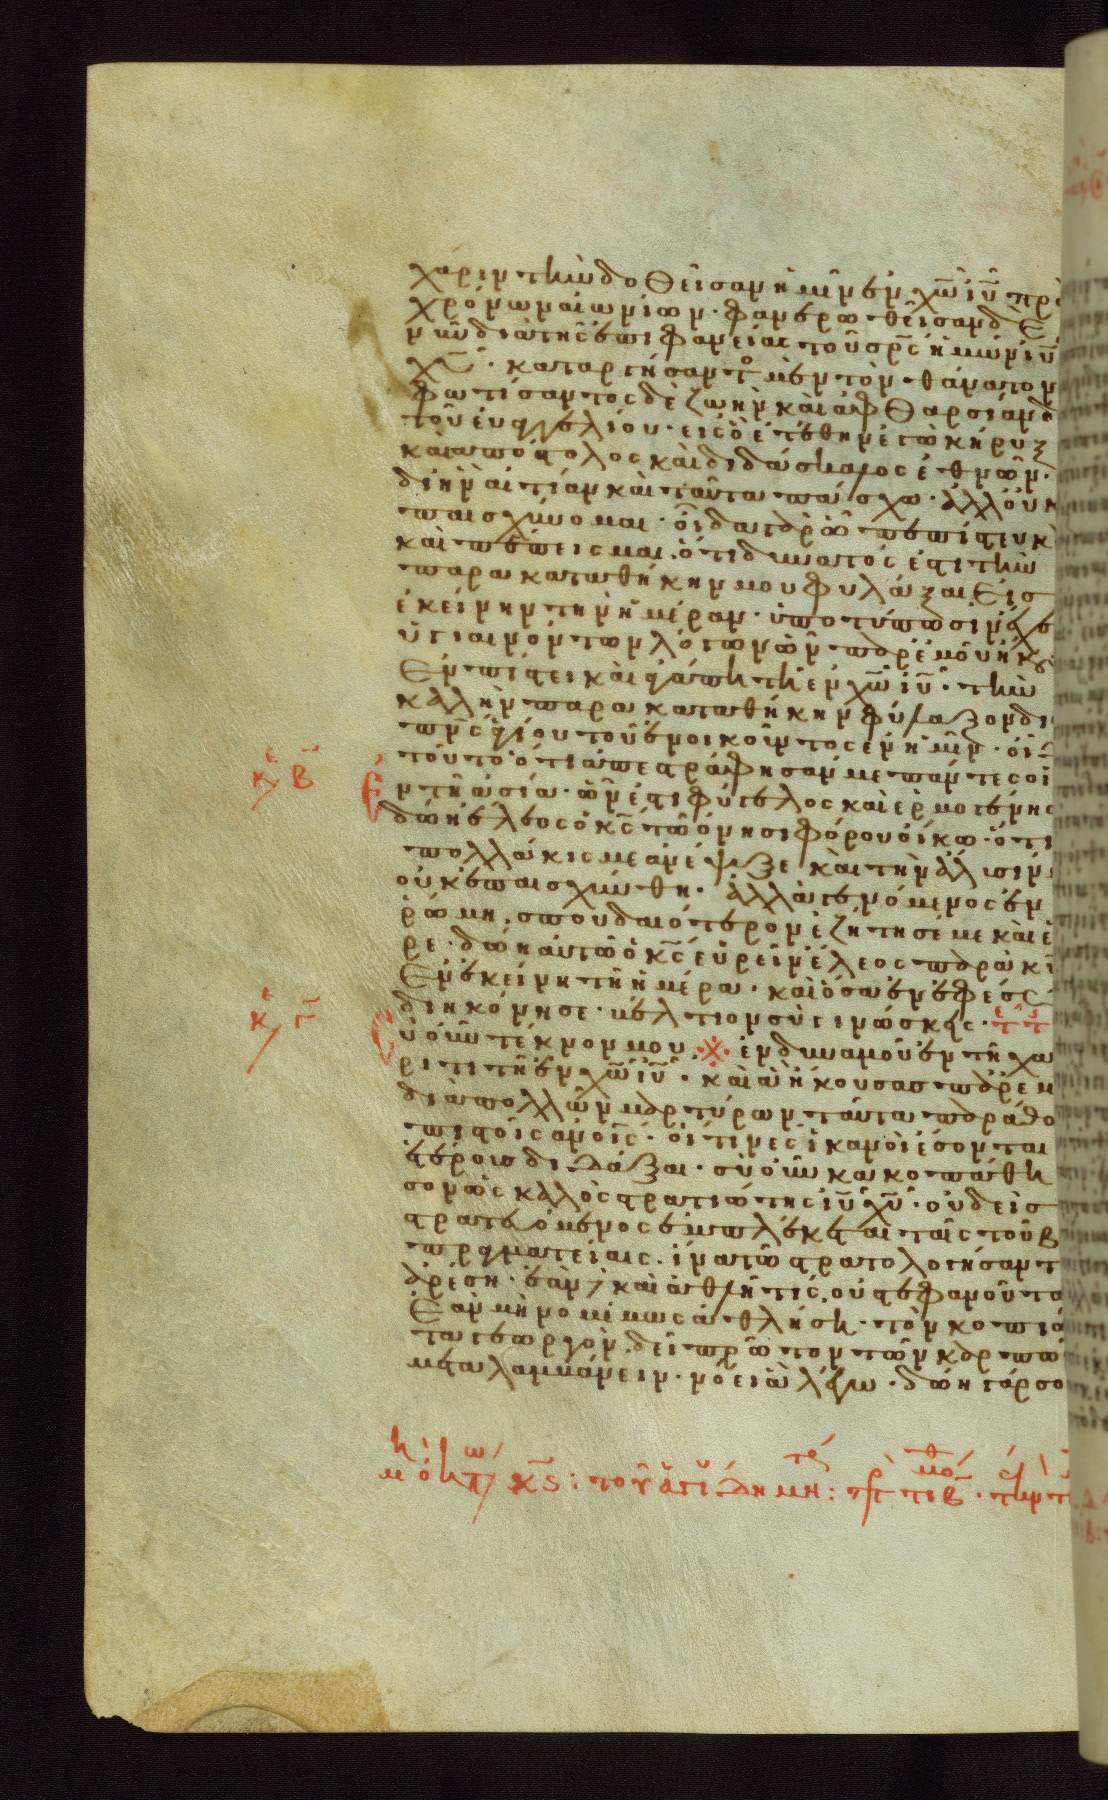 χάριν τὴν δοθεῖσαν ἡμῖν ἐν χω ιυ πρὸ
χρόνων αἰωνίων· φανερωθεῖσαν δε
νῦν διὰ τῆς ἐπιφανείας τοῦ σρς ἡμῶν ιυ
χυ· καταργήσαντο μὲν τὸν θάνατον
φωτίσαντος δὲ ζωὴν καὶ ἀφθαρσίαν δ
τοῦ εὐαγγελίου· εἰς ὃ ἐτέθην ἐγὼ κήρυξ
καὶ ἀπόστολος καὶ διδάσκαλος ἐθνῶν·
δι ἣν αἰτίαν καὶ ταῦτα πάσχω· ἀλλ οὐκ
παισχύνομαι· οἶδα γὰρ ᾧ πεπίστευκ
καὶ πέπεισμαι ὅτι δυνατός ἐστι τὴν
παρακαταθήκην μου φυλάξαι εἰσ
ἐκείνην τὴν ἡμέραν· ὑποτύπωσιν ἔχε
ὑγιαινόντων λόγων ὧν παρ ἐμοῦ ἤκου
ἐν πίστει καὶ ἀγάπη τῆ ἐν χω ιυ· τὴν
καλὴν παρακαταθήκην φύλαξον δι
πνς ἁγίου τοῦ ἐνοικοῦντος ἐν ἡμῖν· οἶδ
τοῦτο ὅτι ἀπεστράφησάν με πάντες οἱ
κε Β ἐ
ν τῆ ἀσία· ὧν ἐστι φύγελος καὶ ἑρμογένης
δώη ἔλεος ὁ κς τῶ ὀνησιφόρου οἴκω· ὅτι
πολλάκις με ἀνέψυξε καὶ τὴν ἅλυσιν
οὐκ ἐπαισχύνθη· ἀλλὰ γενόμενος ἐν
ῥώμη· σπουδαιότερον ἐζήτησέ με καὶ ε
ρε· δώη αὐτῶ ὁ κς εὑρεῖν ἔλεος παρὰ κυ
ἐν ἐκείνη τῆ ἡμέρα· καὶ ὅσα ἐν ἐφέσω
διηκόνησε· βέλτιον σὺ γινώσκεις·
κε Γ Σ
ὺ οὖν τέκνον μου ἐνδυναμοῦ ἐν τῆ χα
ριτι τῆ ἐν χω ιυ· καὶ ἃ ἤκουσας παρ εμ
διὰ πολλῶν μαρτύρων ταῦτα παράθο
πιστοῖς ἀνοις· οἵτινες ἱκανοὶ ἔσονται
ἑτέρους διδάξαι· σὺ οὖν κακοπάθη
σον ὡς καλὸς στρατιώτης ιυ χυ· οὐδεὶσ
στρατευόμενος ἐμπλέκεται ταῖς τοῦ β
πραγματείαις· ἵνα τῶ στρατολογήσαντ
ἀρέση· ἐὰν δὲ καὶ ἀθλῆ τις οὐ στεφανοῦτα
ἐὰν μὴ νομίμως ἀθλήση· τὸν κοπιῶ
τα γεωργὸν δεῖ πρῶτον τῶν καρπῶ
μεταλαμβάνειν· νόει ἃ λέγω· δώη γάρ σο
κς: τοῦ ἁγι δημη: πρ τιβ· τὴν